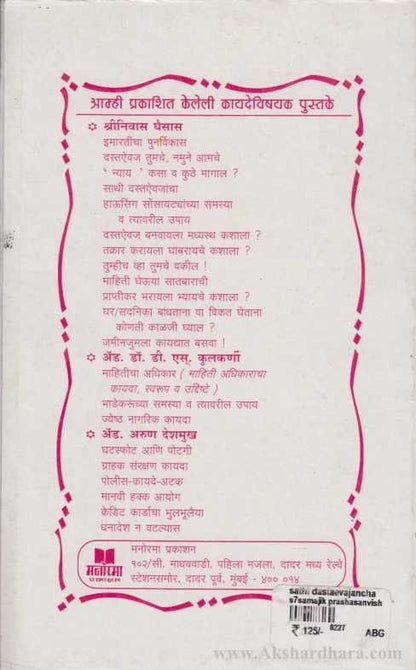 आम्ही प्रकाशित केलेली कायदेविषयक पुस्तके
श्रीनिवास घैसास
इमारतीचा पुनर्विकास
दस्तऐवज तुमचे, नमुने आमचे
' न्याय ' कसा व कुठे मागाल ?
साथी दस्तऐवजांचा
हाऊसिंग सोसायट्यांच्या समस्या
व त्यावरील उपाय
दस्तऐवज बनवायला मध्यस्थ कशाला ?
तक्रार करायला घाबरायचे कशाला ?
तुम्हीच व्हा तुमचे वकील !
माहिती घेऊया सातबाराची
प्राप्तीकर भरायला भ्यायचे कशाला ?
घर/सदनिका बांधताना वा विकत घेताना
कोणती काळजी घ्याल ?
जमीनजुमला कायद्यात बसवा !
अ‍ॅड. डॉ. डी. एस्. कुलकर्णी
माहितीचा अधिकार ( माहिती अधिकाराचा
कायदा, स्वरूप व उद्दिष्टे )
भाडेकरूंच्या समस्या व त्यावरील उपाय
ज्येष्ठ नागरिक कायदा
अ‍ॅड. अरुण देशमुख
घटस्फोट आणि पोटगी
ग्राहक संरक्षण कायदा
पोलीस-कायदे-अटक
मानवी हक्क आयोग
क्रेडिट कार्डाचा भुलभूलैया
धनादेश न वटल्यास
मनोरमा
प्रकाशन
मनोरमा प्रकाशन
१०२/सी, माधववाडी, पहिला मजला, दादर मध्य रेल्वे
स्टेशनसमोर, दादर पूर्व, मुंबई - ४०० ०१४
sathi dastaevajancha
s7samajik prashasanvish
₹ 125/- 8227 ABG
www.Akshardhara.com